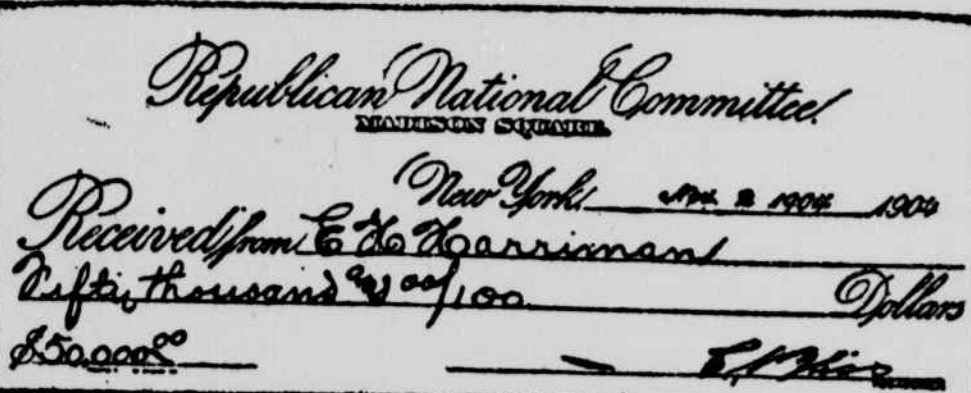 Republican National Committee.
MADISON SQUARE.
New York, Nov 2 1904 1904
Received from E H Harriman
Fifty thousand and 00/100 Dollars
$50,000 00